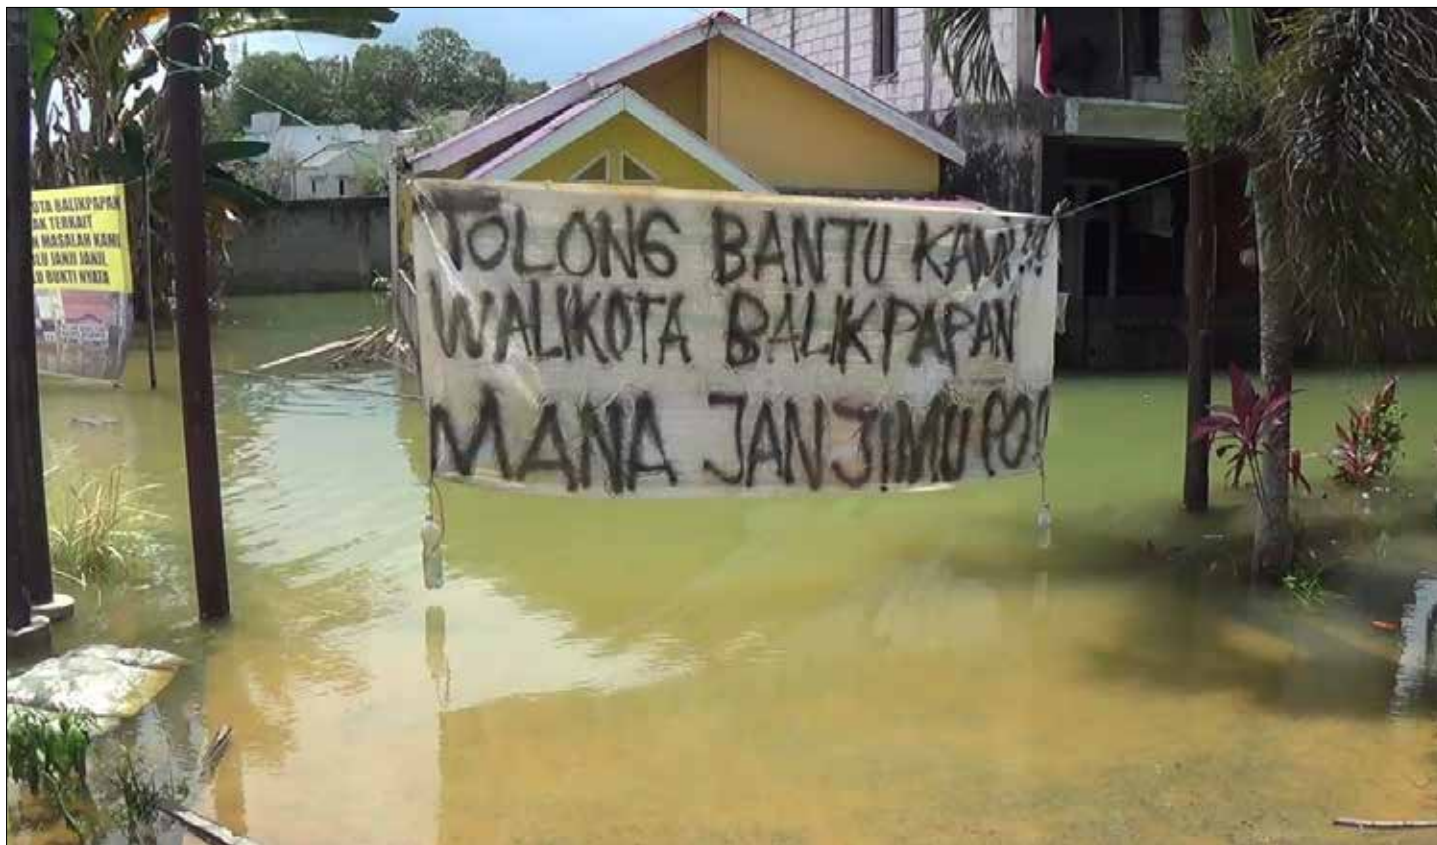 OTA BALIKPAPAN
AN TERKAIT
MASALAH KAMI
ALU JANJI JANJI,
LU BUKTI NYATA
TOLONG BANTU KAMI!!!
WALIKOTA BALIKPAPAN
MANA JANJIMU PO!!